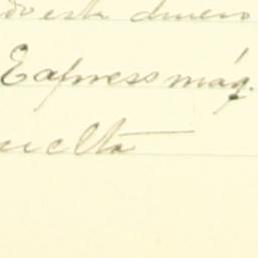 do esta dinero
Express máq.
uelta